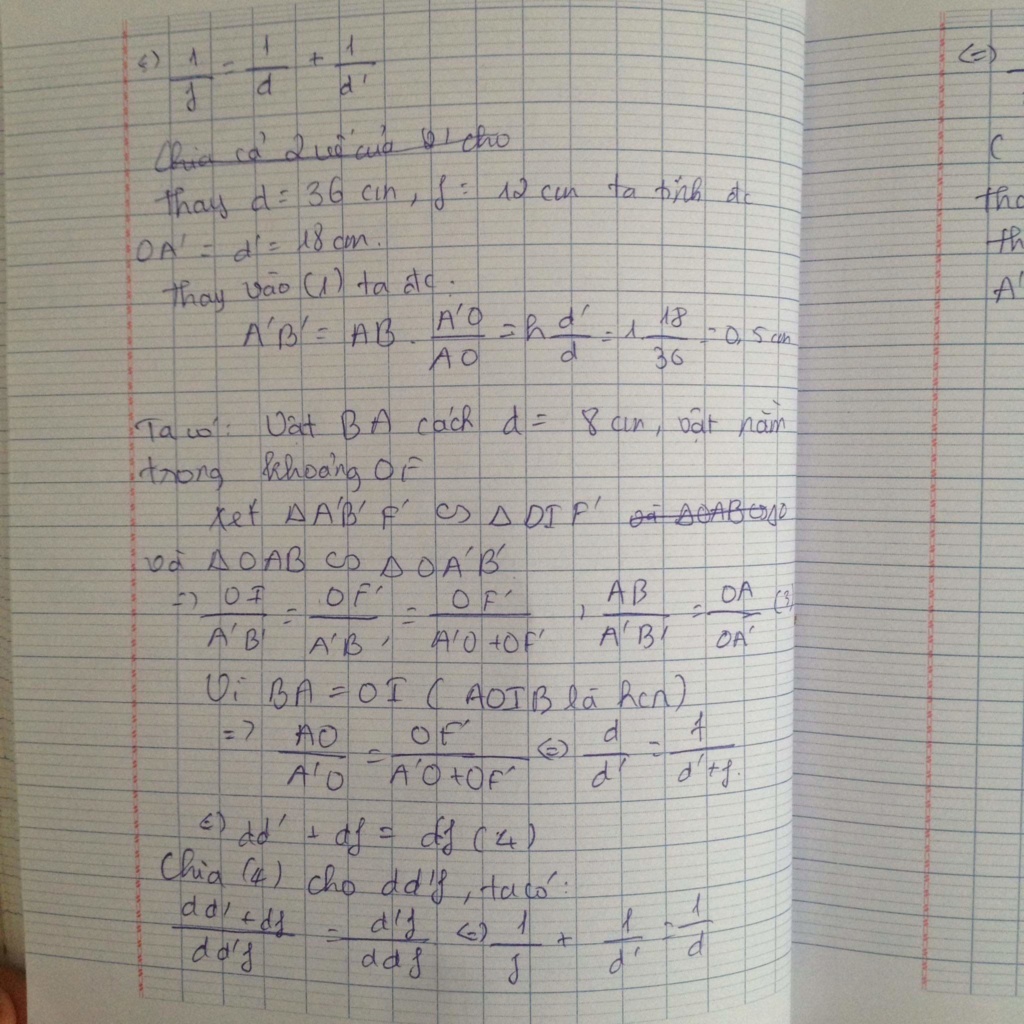 <=) 1/f = 1/d + 1/d'
Chia cả 2 vế của cho
thay d = 36 cm, f = 12 cm ta tính đc
OA' = d' = 18 cm.
thay vào (1) ta đc:
A'B' = AB . A'O/AO = h d'/d = 1 18/36 = 0,5 cm
Ta có: Vật BA cách d = 8 cm, vật nằm
trong khoảng OF
xét ΔA'B'F' ∽ ΔOIF' và ΔOAB ∽
và ΔOAB ∽ ΔOA'B'
=> OI/A'B' = OF'/A'B' = OF'/A'O+OF' , AB/A'B' = OA/OA' (3)
Vì BA = OI (AOIB là hcn)
=> AO/A'O = OF'/A'O+OF' <=> d/d' = f/d'+f.
<=) dd' + df = df (4)
Chia (4) cho dd'f, ta có:
dd'+df/dd'f = d'f/ddf <=> 1/f + 1/d' = 1/d
(=)
C
tha
th
A'